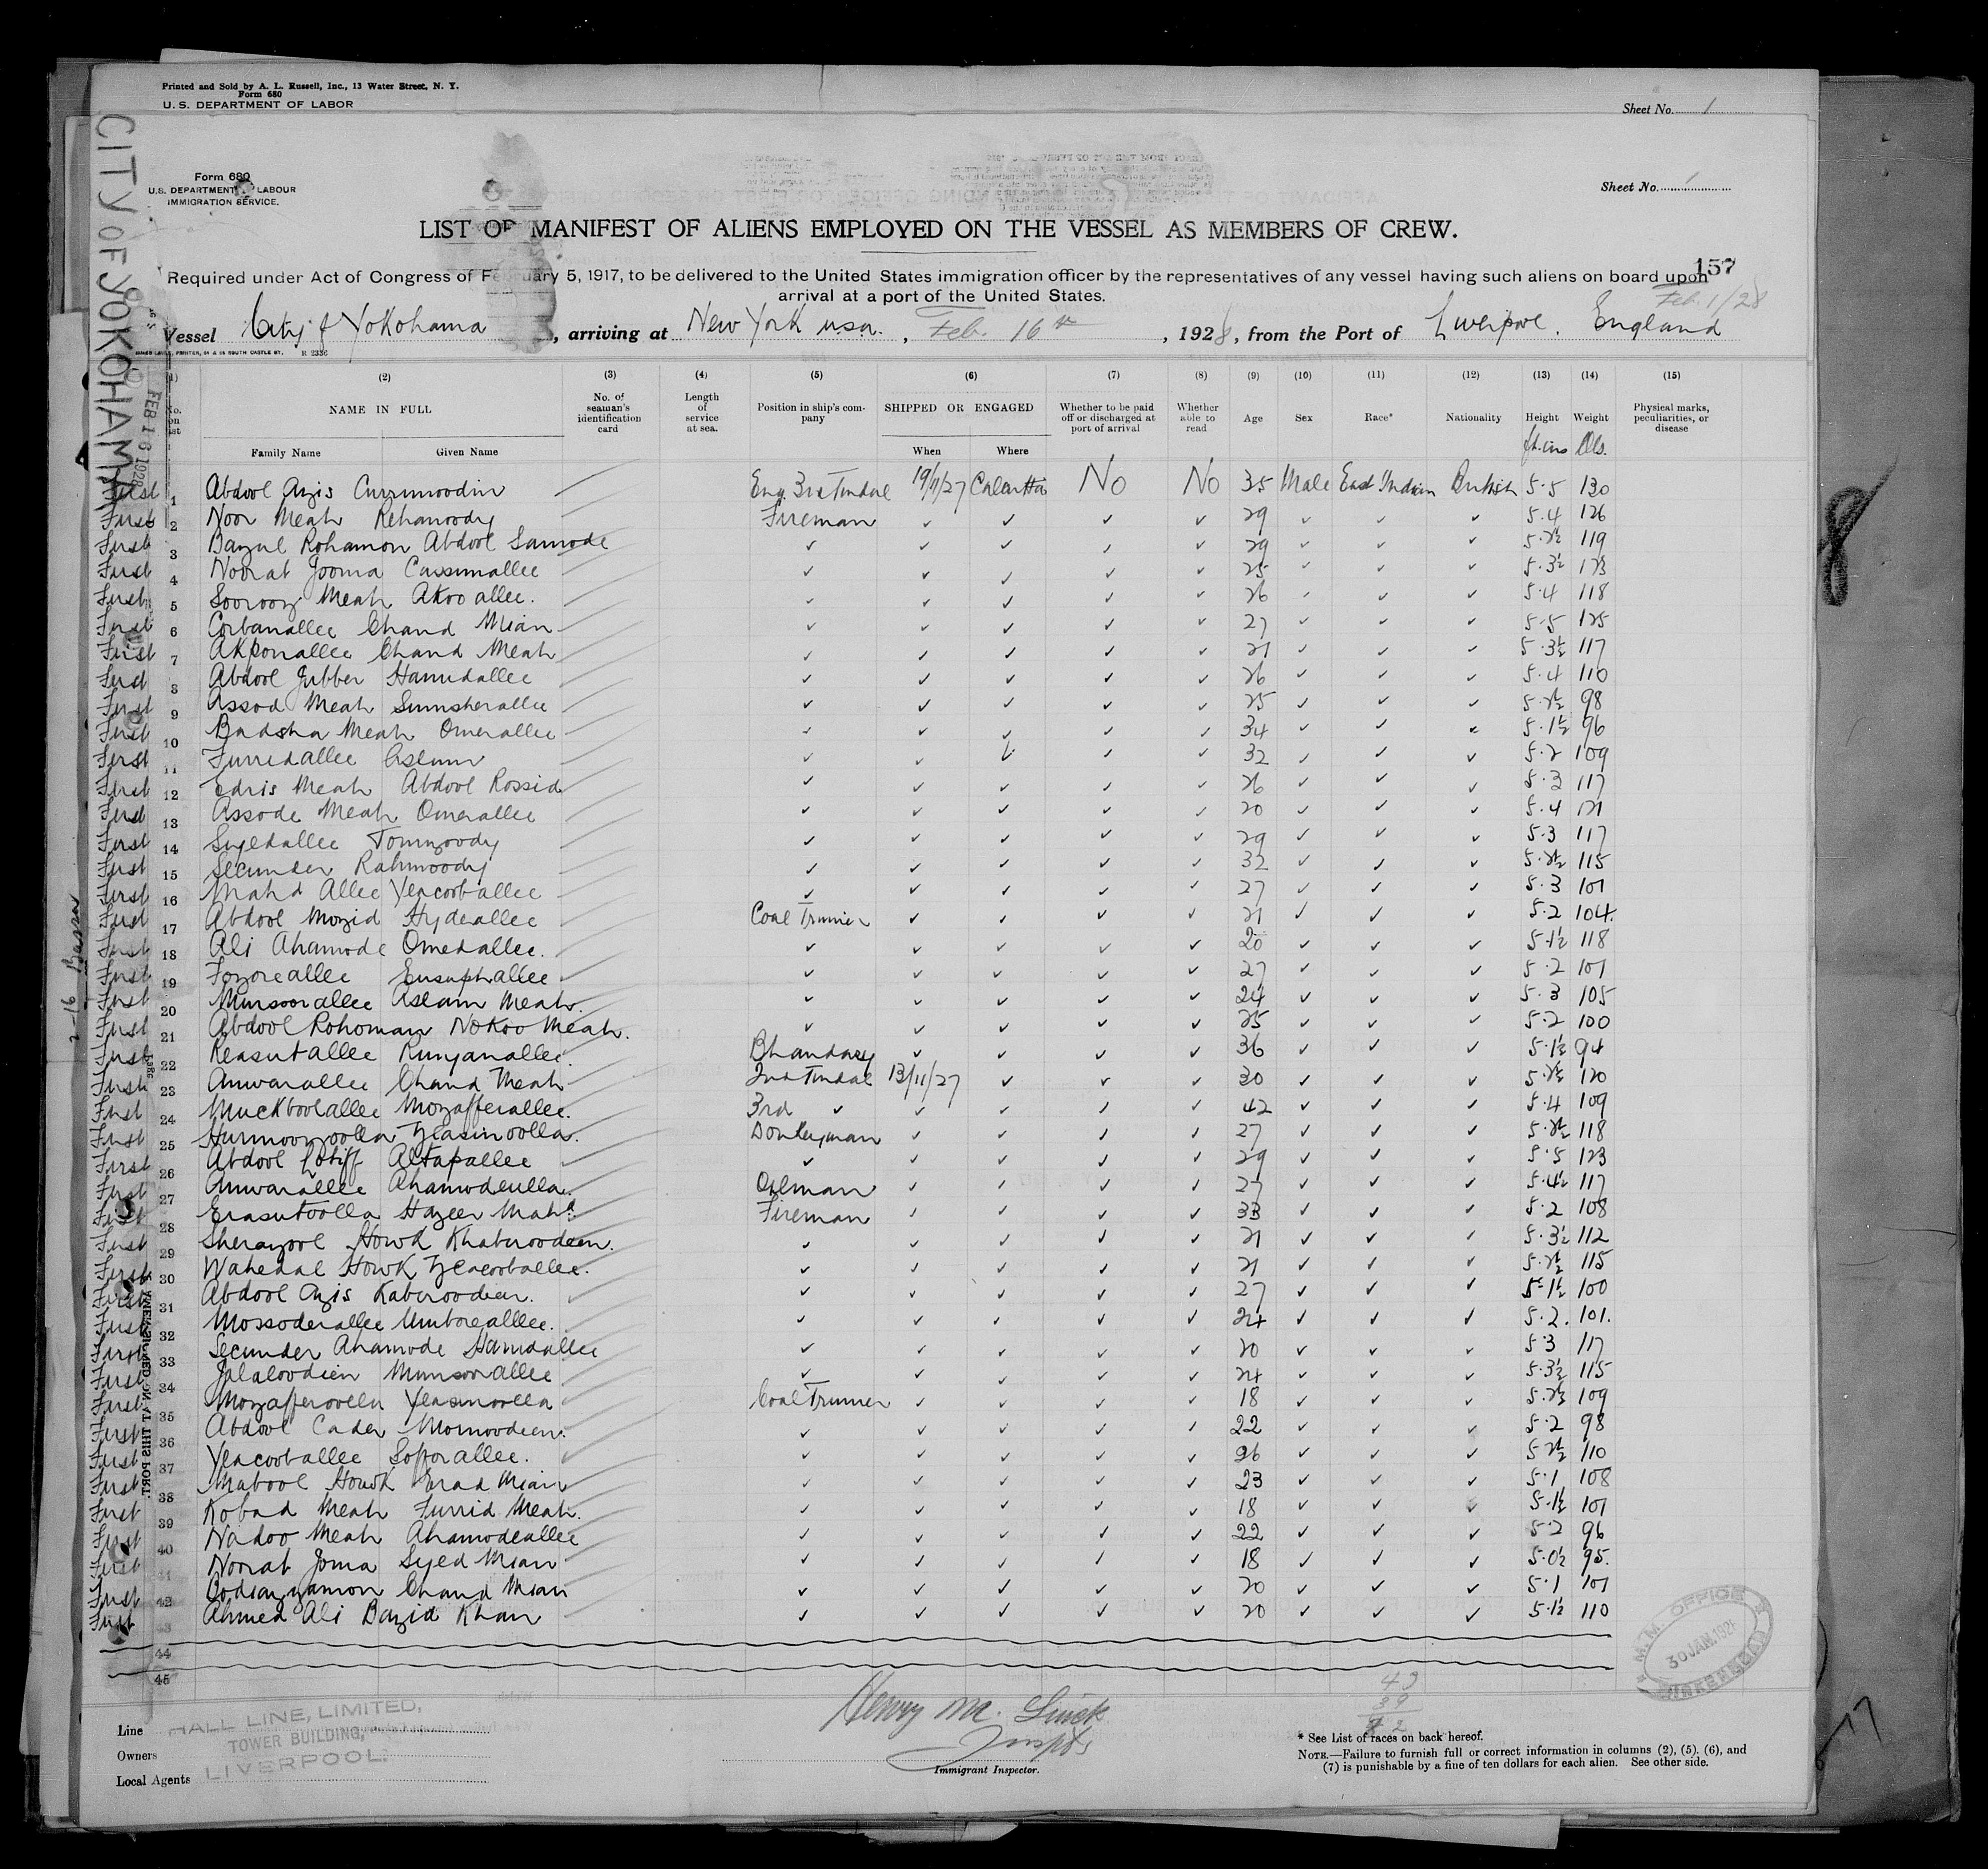 Printed and Sold by A. L. Russell, Inc., 13 Water Street, N. Y.
Form 680
U. S. DEPARTMENT OF LABOR
Sheet No. 1
CITY OF YOKOHAMA
FEB 16 1928
Form 680
U.S. DEPARTMENT LABOUR
IMMIGRATION SERVICE.
Sheet No. 1
LIST OF MANIFEST OF ALIENS EMPLOYED ON THE VESSEL AS MEMBERS OF CREW.
157
Required under Act of Congress of February 5, 1917, to be delivered to the United States immigration officer by the representatives of any vessel having such aliens on board upon
arrival at a port of the United States.
Feb. 1/28
Vessel City of Yokohama, arriving at New York U.S.A., Feb. 16th, 1928, from the Port of Liverpool. England
R 2336
(1) (2) (3) (4) (5) (6) (7) (8) (9) (10) (11) (12) (13) (14) (15)
No. on list NAME IN FULL No. of seaman's identification card Length of service at sea. Position in ship's company SHIPPED OR ENGAGED Whether to be paid off or discharged at port of arrival Whether able to read Age Sex Race* Nationality Height Weight Physical marks, peculiarities, or disease
Family Name Given Name When Where ft. ins lbs.
First 1 Abdool Azis Currimoodin Eng. 3rd Tindal 19/11/27 Calcutta No No 35 Male East Indian British 5.5 130
First 2 Noor Meah Rehamoody Fireman ✓ ✓ ✓ ✓ 29 ✓ ✓ ✓ 5.4 126
First 3 Bazul Rohamon Abdool Samode ✓ ✓ ✓ ✓ ✓ 29 ✓ ✓ ✓ 5.2½ 119
First 4 Noorat Jooma Cassimallee ✓ ✓ ✓ ✓ ✓ 25 ✓ ✓ ✓ 5.3½ 123
First 5 Meah Akoo allee. ✓ ✓ ✓ ✓ ✓ 26 ✓ ✓ ✓ 5.4 118
First 6 Corbanallee Chand Mian ✓ ✓ ✓ ✓ ✓ 27 ✓ ✓ ✓ 5.5 125
First 7 Akponallee Chand Meah ✓ ✓ ✓ ✓ ✓ 21 ✓ ✓ ✓ 5.3½ 117
First 8 Abdool Jubber Hamidallee ✓ ✓ ✓ ✓ ✓ 26 ✓ ✓ ✓ 5.4 110
First 9 Assod Meah Sumsherallee ✓ ✓ ✓ ✓ ✓ 25 ✓ ✓ ✓ 5.2½ 98
First 10 Badsha Meah Omerallee ✓ ✓ ✓ ✓ ✓ 34 ✓ ✓ ✓ 5.1½ 96
First 11 Furridallee Aslam ✓ ✓ ✓ ✓ ✓ 32 ✓ ✓ ✓ 5.2 109
First 12 Edris Meah Abdool Rossid ✓ ✓ ✓ ✓ ✓ 26 ✓ ✓ ✓ 5.3 117
First 13 Assode Meah Omerallee ✓ ✓ ✓ ✓ ✓ 20 ✓ ✓ ✓ 5.4 121
First 14 Syedallee Tomizoody ✓ ✓ ✓ ✓ ✓ 29 ✓ ✓ ✓ 5.3 117
First 15 Secunder Rahmoody ✓ ✓ ✓ ✓ ✓ 32 ✓ ✓ ✓ 5.2½ 115
First 16 Mahd Allee Yeacooballee ✓ ✓ ✓ ✓ ✓ 27 ✓ ✓ ✓ 5.3 101
First 17 Abdool Mozid Hyderallee Coal Trimmer ✓ ✓ ✓ ✓ 21 ✓ ✓ ✓ 5.2 104.
First 18 Ali Ahamode Omedallee. ✓ ✓ ✓ ✓ ✓ 20 ✓ ✓ ✓ 5.1½ 118
First 19 Fozoreallee Eusuphallee ✓ ✓ ✓ ✓ ✓ 27 ✓ ✓ ✓ 5.2 101
First 20 Munsoorallee Aslam Meah. ✓ ✓ ✓ ✓ ✓ 24 ✓ ✓ ✓ 5.3 105
First 21 Abdool Rohoman Nokoo Meah. ✓ ✓ ✓ ✓ ✓ 25 ✓ ✓ ✓ 5.2 100
First 22 Reasutallee Runjanallee Bhandary ✓ ✓ ✓ ✓ 36 ✓ ✓ ✓ 5.1½ 94
First 23 Anwarallee Chand Meah 2nd Tindal 13/11/27 ✓ ✓ ✓ 30 ✓ ✓ ✓ 5.2½ 120
First 24 Muckboolallee Mozafferallee. 3rd ✓ ✓ ✓ ✓ ✓ 42 ✓ ✓ ✓ 5.4 109
First 25 Hurmoozoolla Yeasinoolla. Donkeyman ✓ ✓ ✓ ✓ 27 ✓ ✓ ✓ 5.2½ 118
First 26 Abdool Lotiff Altapallee ✓ ✓ ✓ ✓ ✓ 29 ✓ ✓ ✓ 5.5 123
First 27 Anwarallee Ahamodeulla. Oilman ✓ ✓ ✓ ✓ 27 ✓ ✓ ✓ 5.4½ 117
First 28 Erasutoolla Hazeer Mahd. Fireman ✓ ✓ ✓ ✓ 33 ✓ ✓ ✓ 5.2 108
First 29 Sherazool Howk Khaberoodeen. ✓ ✓ ✓ ✓ ✓ 21 ✓ ✓ ✓ 5.3½ 112
First 30 Wahedal Howk Yeacooballee. ✓ ✓ ✓ ✓ ✓ 21 ✓ ✓ ✓ 5.2½ 115
First 31 Abdool Azis Kaberoodeen. ✓ ✓ ✓ ✓ ✓ 27 ✓ ✓ ✓ 5.1½ 100
First 32 Mossoderallee Umboreallee. ✓ ✓ ✓ ✓ ✓ 24 ✓ ✓ ✓ 5.2. 101.
First 33 Secunder Ahamode Hamidallee ✓ ✓ ✓ ✓ ✓ 20 ✓ ✓ ✓ 5.3 117
First 34 Jalaloodien Munsoorallee ✓ ✓ ✓ ✓ ✓ 24 ✓ ✓ ✓ 5.3½ 115
First 35 Mozafferoolla Yeasinoolla Coal Trimmer ✓ ✓ ✓ ✓ 18 ✓ ✓ ✓ 5.2½ 109
First 36 Abdool Cader Momoodeen. ✓ ✓ ✓ ✓ ✓ 22 ✓ ✓ ✓ 5.2 98
First 37 Yeacooballee Sofforallee. ✓ ✓ ✓ ✓ ✓ 26 ✓ ✓ ✓ 5.2½ 110
First 38 Mabool Howk Erad Mian ✓ ✓ ✓ ✓ ✓ 23 ✓ ✓ ✓ 5.1 108
First 39 Kobad Meah Furrid Meah. ✓ ✓ ✓ ✓ ✓ 18 ✓ ✓ ✓ 5.1½ 101
First 40 Nadoo Meah Ahamodeallee ✓ ✓ ✓ ✓ ✓ 22 ✓ ✓ ✓ 5.2 96
First 41 Noorat Joma Syed Mian ✓ ✓ ✓ ✓ ✓ 18 ✓ ✓ ✓ 5.0½ 95.
First 42 Bodiazzamon Chand Mian ✓ ✓ ✓ ✓ ✓ 20 ✓ ✓ ✓ 5.1 101
First 43 Ahmed Ali Bazid Khan ✓ ✓ ✓ ✓ ✓ 20 ✓ ✓ ✓ 5.1½ 110
44
45
M. M. OFFICE
30 JAN. 192
BIRKENHEAD
43
39
82
Henry M.
Insptr
Immigrant Inspector.
Line HALL LINE, LIMITED,
Owners TOWER BUILDING,
Local Agents LIVERPOOL.
* See List of races on back hereof.
NOTE.—Failure to furnish full or correct information in columns (2), (5), (6), and
(7) is punishable by a fine of ten dollars for each alien. See other side.